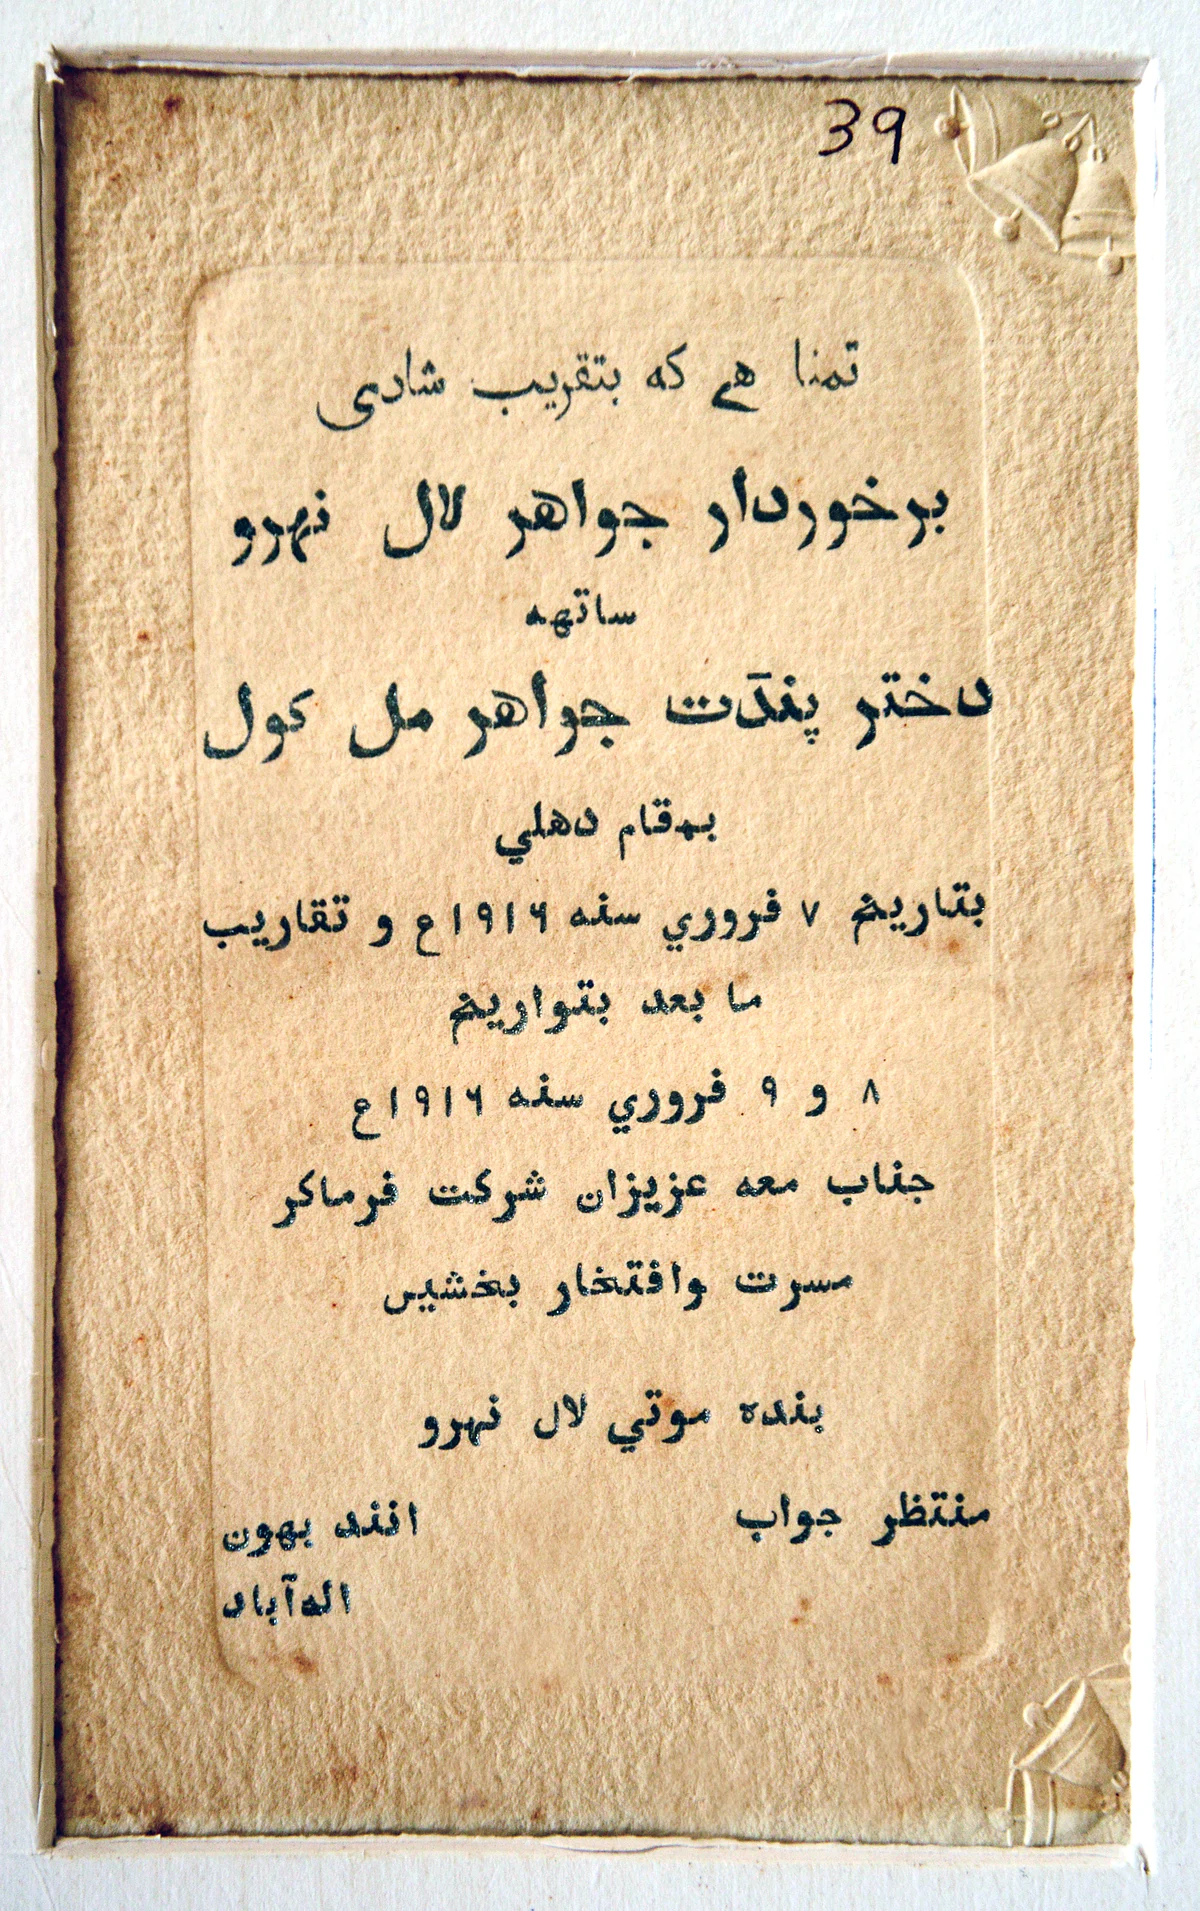 39
تمنا هے که بتقریب شادی
برخوردار جواهر لال نهرو
ساتهه
دختر پنڈت جواهر مل کول
بمقام دهلي
بتاریخ ۷ فروري سنه ۱۹۱۶ع و تقاریب
ما بعد بتواریخ
۸ و ۹ فروري سنه ۱۹۱۶ع
جناب معه عزیزان شرکت فرماکر
مسرت وافتخار بخشیں
بنده موتي لال نهرو
منتظر جواب
انند بهون
اله‌آباد